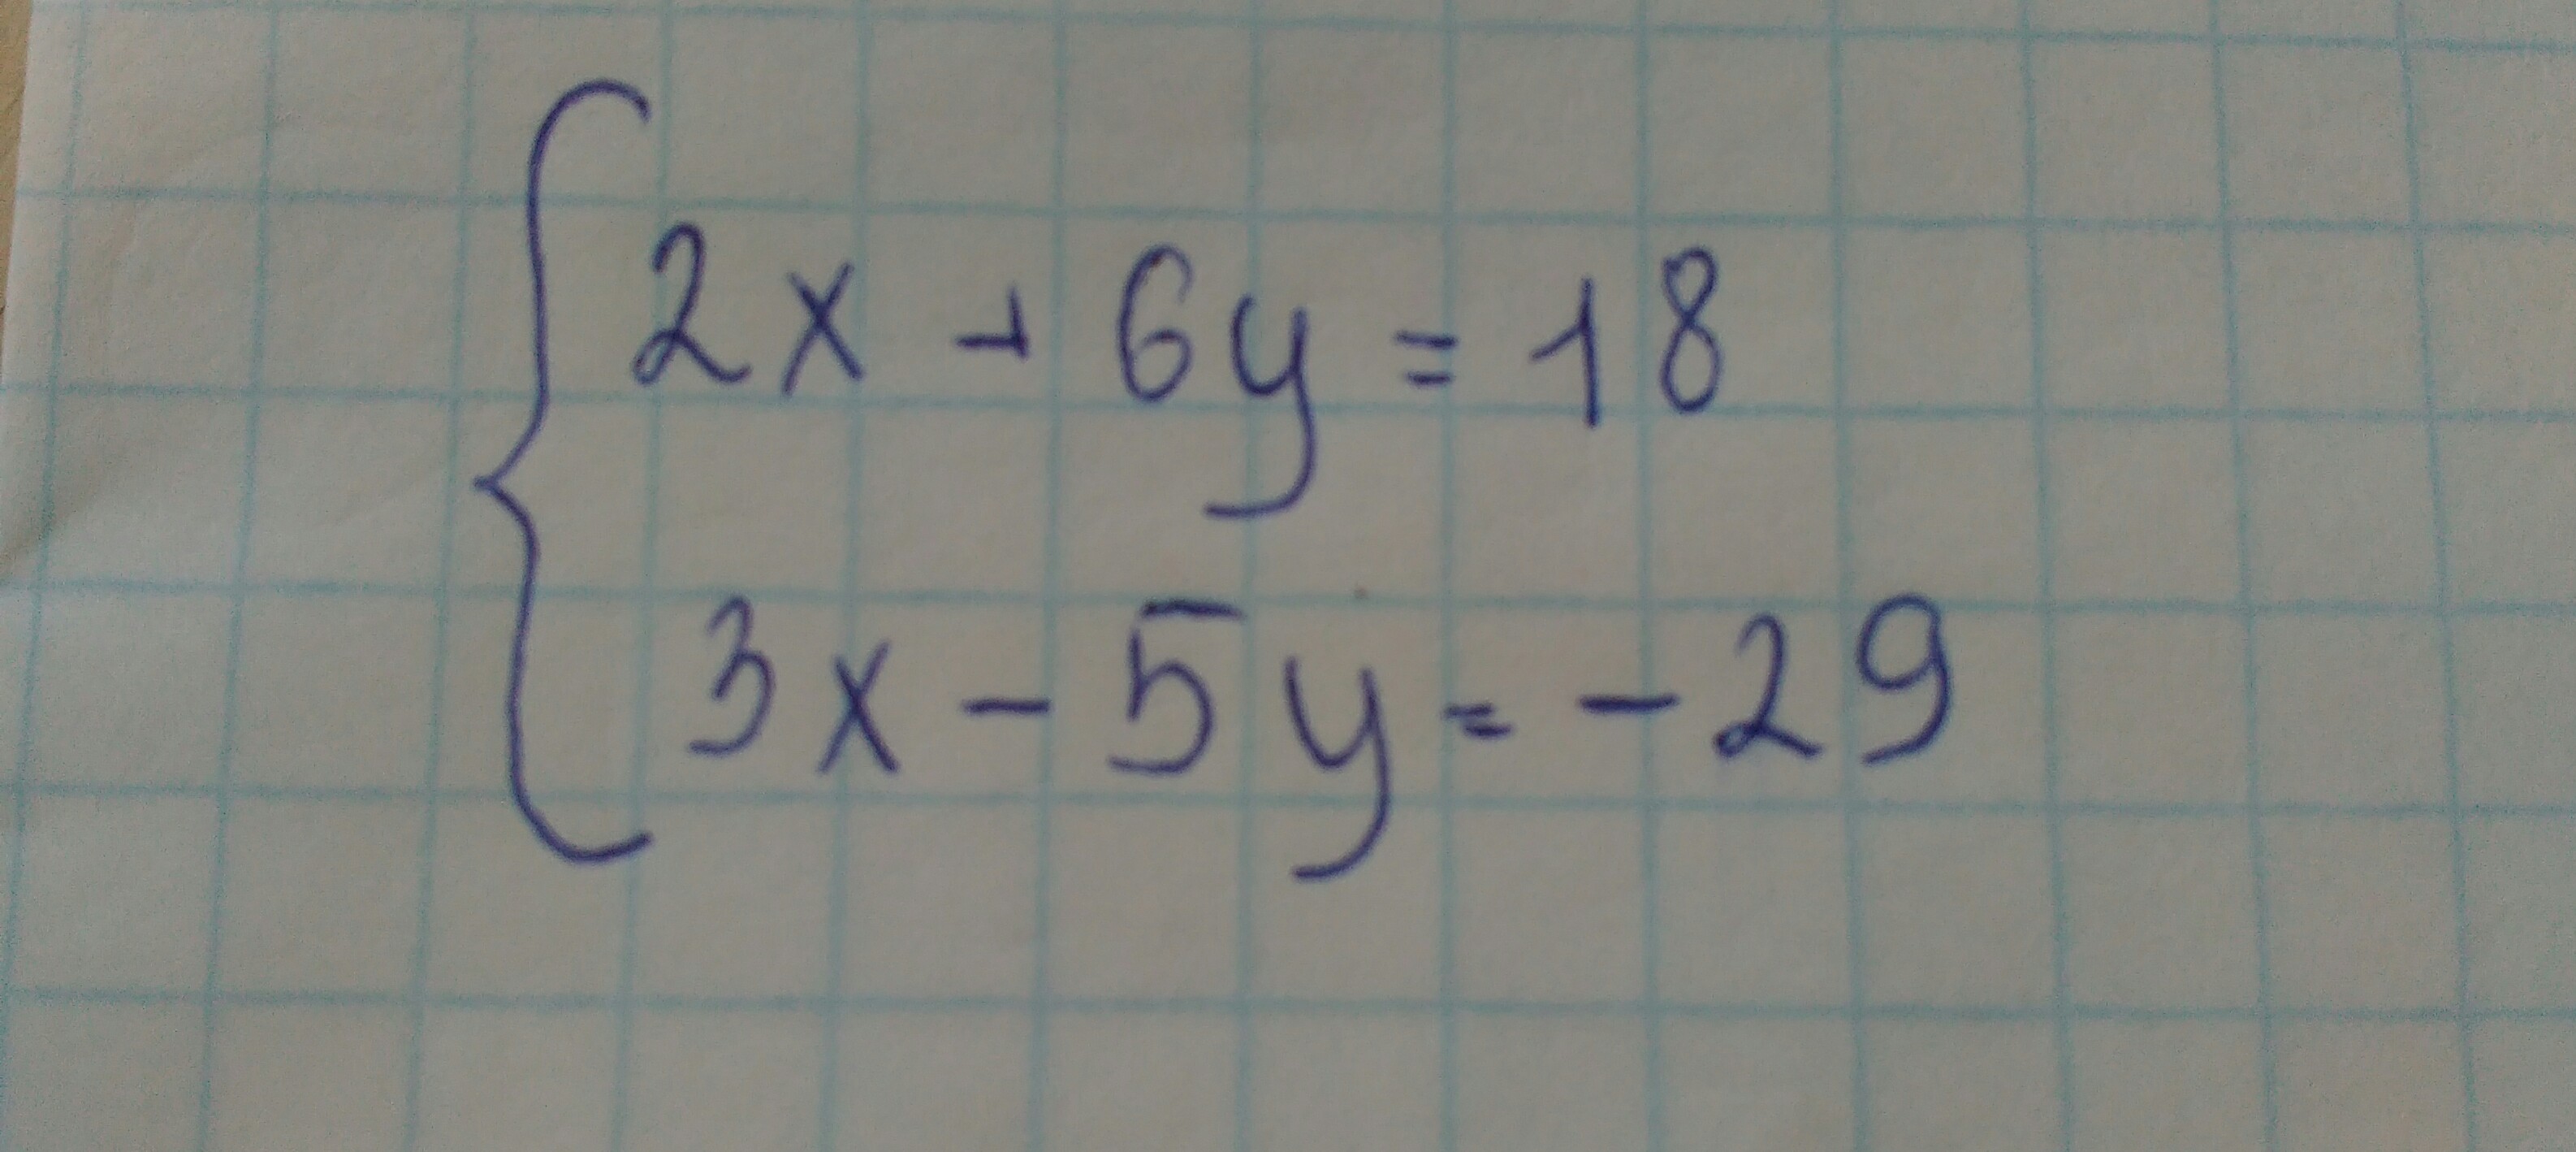 2x + 6y = 18
3x - 5y = -29